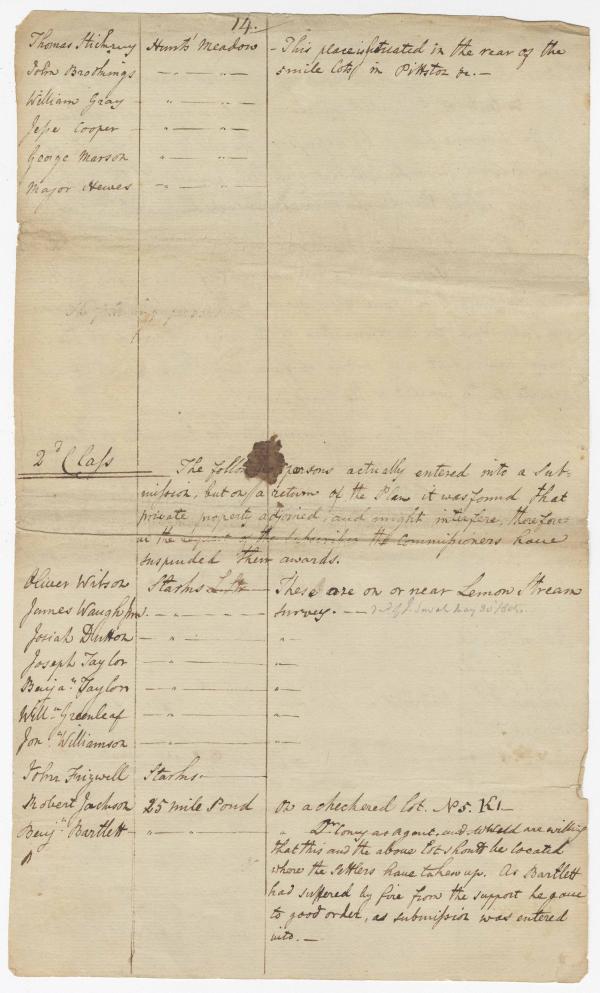 14.
Thomas Stickney Hunts' Meadow – This place is situated in the rear of the
John Brookings — " — " — 5 mile lots in Pittston &c. —
William Gray — " — " —
Jesse Cooper — " — " —
George Marson — " — " —
Major Hewes — " — " —
2d Class
The following persons actually entered into a sub-
mission, but on a return of the Plan it was found that
private property adjoined and might interfere, therefore
at the request of the Subscriber the Commissioners have
suspended their awards.
Oliver Witson Starks These are on or near Lemon Stream
James Waugh Jun. — " — survey. —
Josiah Dutton — " — "
Joseph Taylor — " — "
Benja.n Taylor — " — "
Will.m Greenleaf — " — "
Jon.n Williamson — " — "
John Frizwell Starks —
Robert Jackson 25 mile Pond On a checkered lot. No 5. K1 —
Benj.n Bartlett — " — " — " Dr. Cony as agent, and are willing
that this and the above lot should be located
where the Settlers have taken up. As Bartlett
had suffered by fire from the support he gave
to good order, as submission was entered
into. —